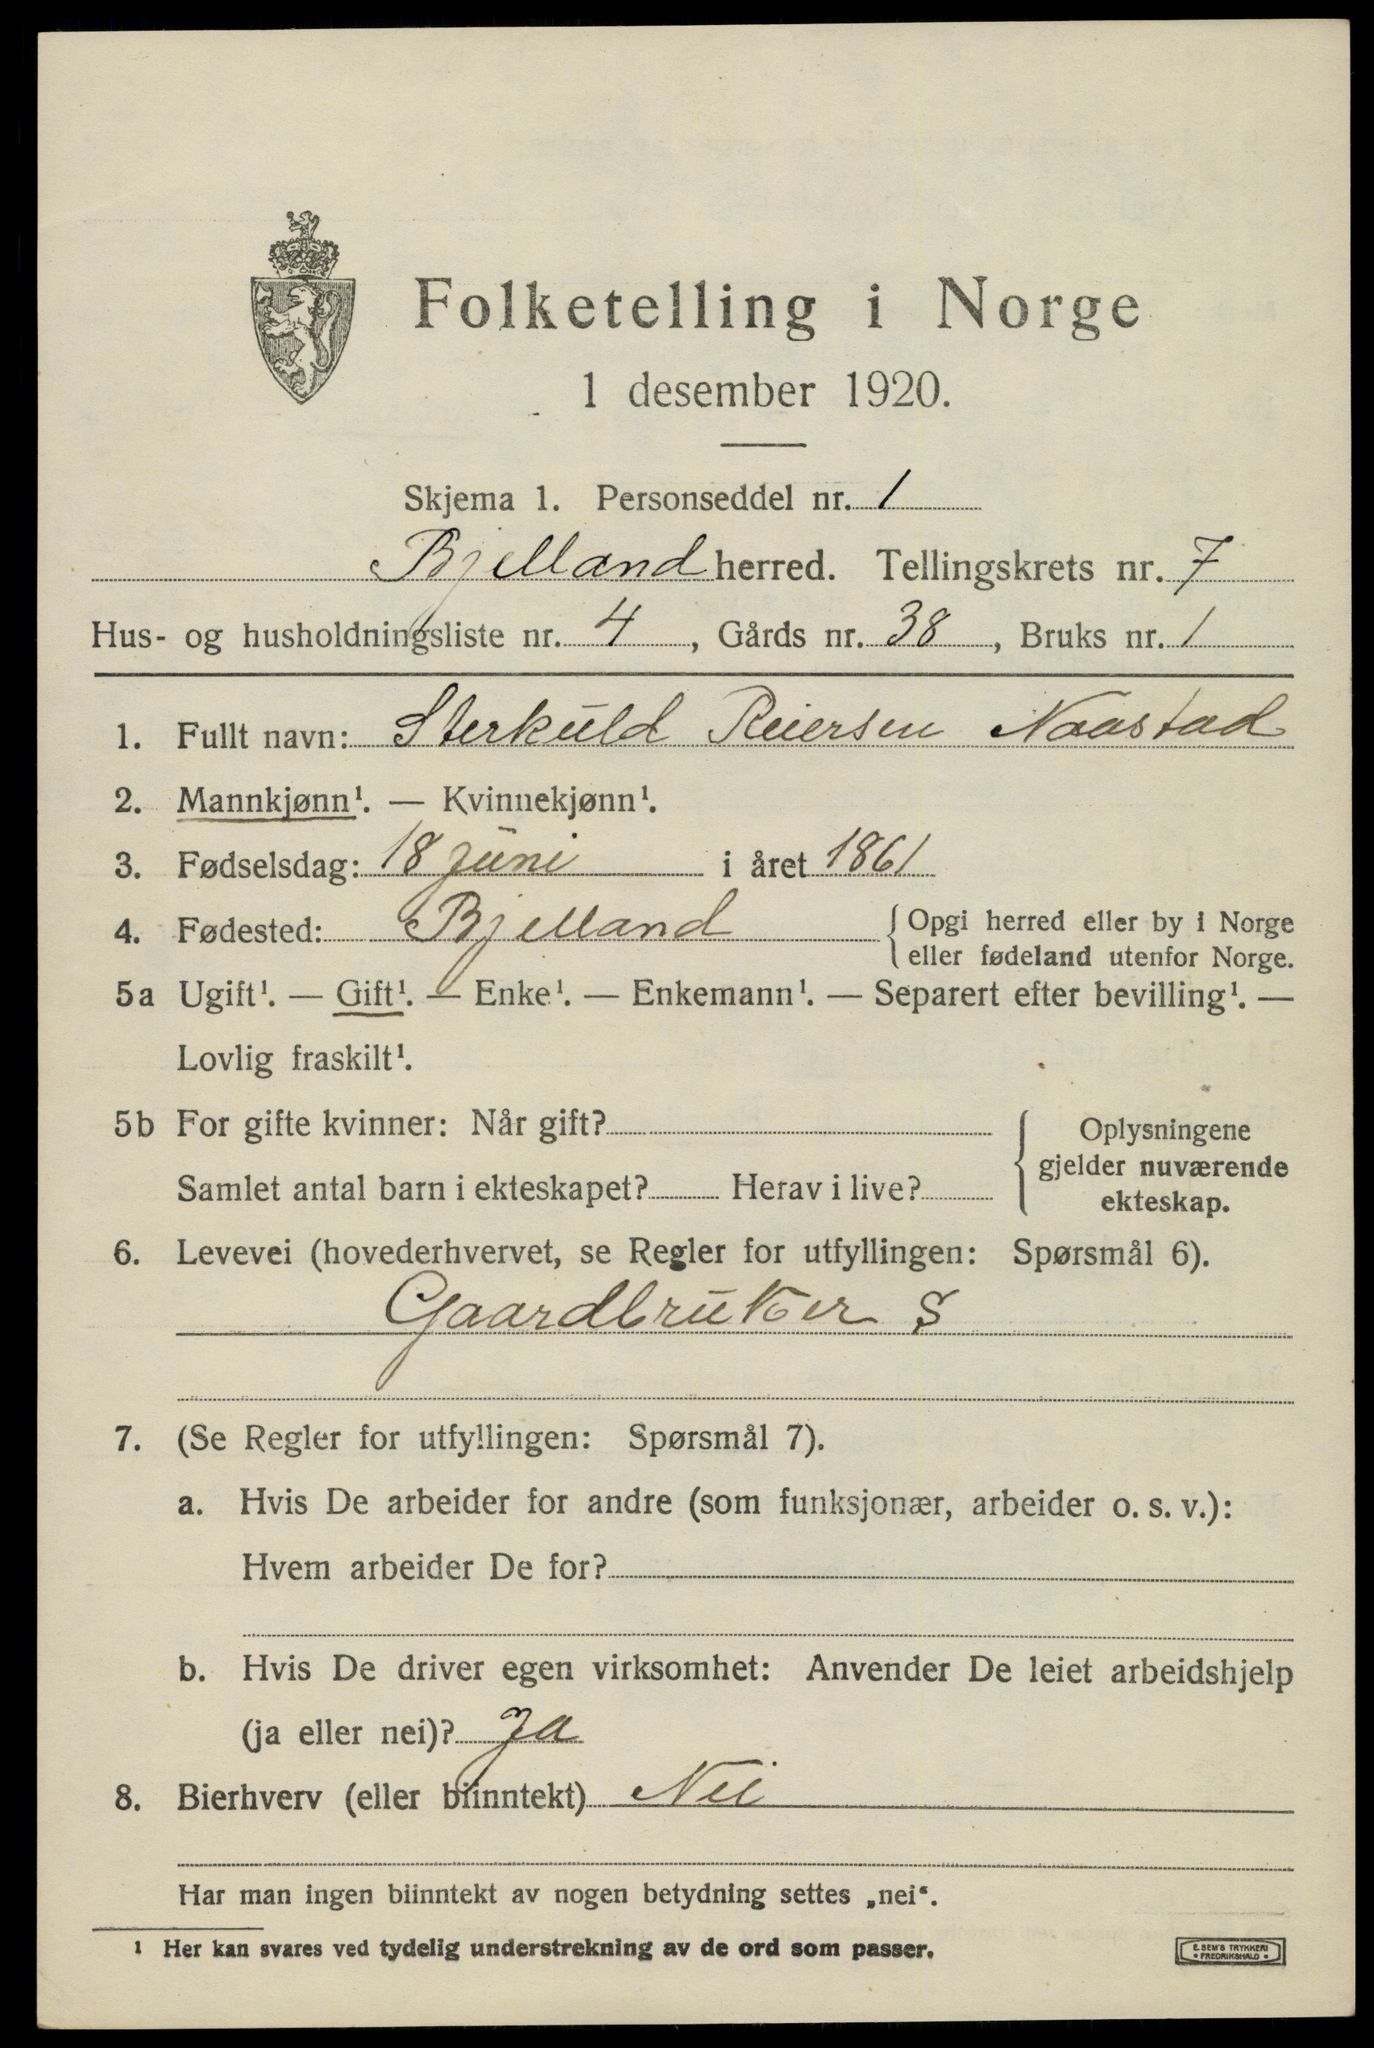 Folketelling i Norge
1 desember 1920.
Skjema 1. Personseddel nr. 1
Bjelland herred. Tellingskrets nr. 7
Hus- og husholdningsliste nr. 4, Gårds nr. 38, Bruks nr. 1
1. Fullt navn: Sterkuld Reiersen Naastad
2. Mannkjønn¹. — Kvinnekjønn¹.
3. Fødselsdag: 18 juni i året 1861
4. Fødested: Bjelland { Opgi herred eller by i Norge
eller fødeland utenfor Norge.
5a Ugift¹. — Gift¹. — Enke¹. — Enkemann¹. — Separert efter bevilling¹. —
Lovlig fraskilt¹.
5b For gifte kvinner: Når gift?
Samlet antal barn i ekteskapet? Herav i live?
Oplysningene
gjelder nuværende
ekteskap.
6. Levevei (hovederhvervet, se Regler for utfyllingen: Spørsmål 6).
Gaardbruker S
7. (Se Regler for utfyllingen: Spørsmål 7).
a. Hvis De arbeider for andre (som funksjonær, arbeider o. s. v.):
Hvem arbeider De for?
b. Hvis De driver egen virksomhet: Anvender De leiet arbeidshjelp
(ja eller nei)? Ja
8. Bierhverv (eller biinntekt) Nei
Har man ingen biinntekt av nogen betydning settes „nei“.
¹ Her kan svares ved tydelig understrekning av de ord som passer.
E. SEM'S TRYKKERI
• FREDRIKSHALD •